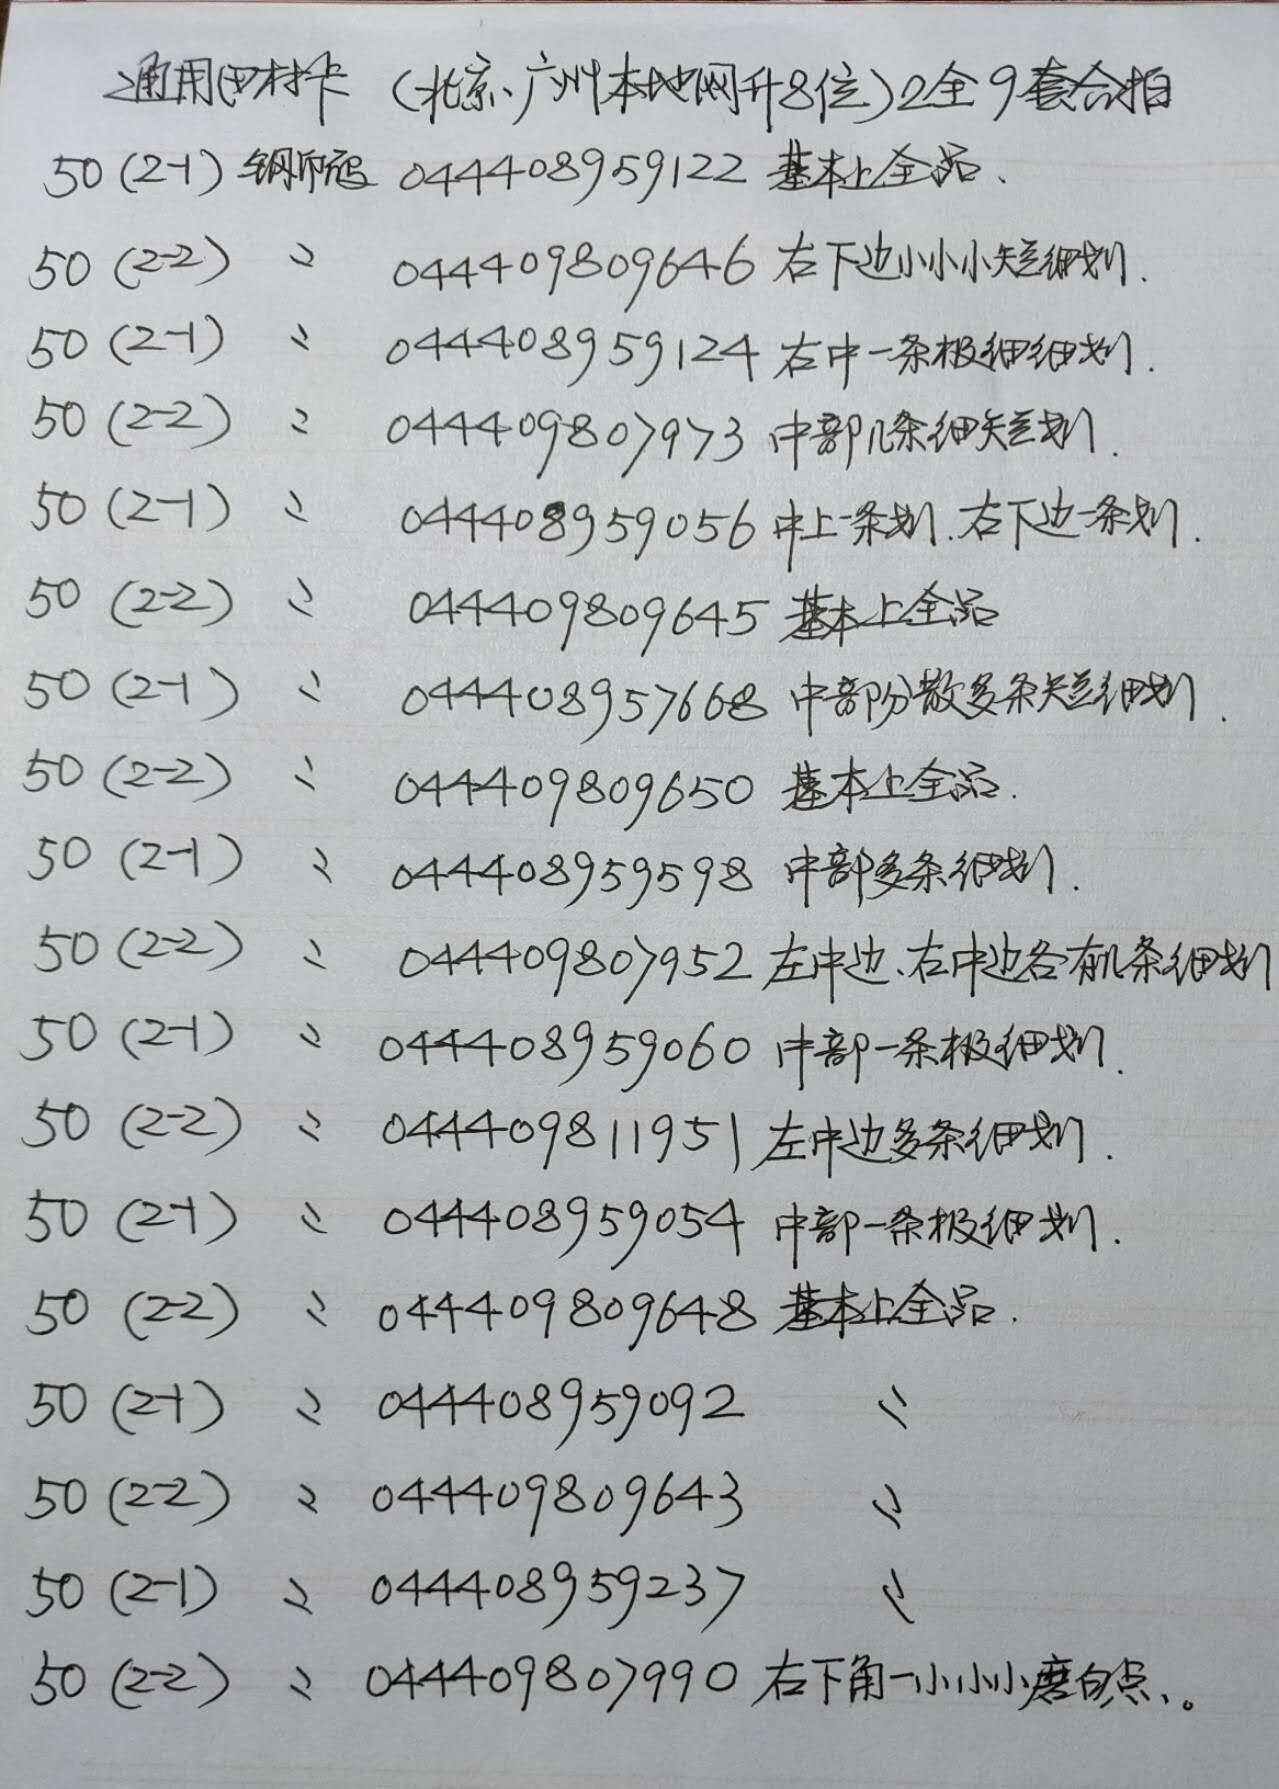 通用田村卡 (北京、广州本地网升8位)2全9套合拍
50 (2-1) 钢印冠 044408959122 基本上全品.
50 (2-2) 〃 044409809646 右下边小小小短细划.
50 (2-1) 〃 044408959124 右中一条极细细划.
50 (2-2) 〃 044409807973 中部几条细短划.
50 (2-1) 〃 044408959056 中上一条划.右下边一条划.
50 (2-2) 〃 044409809645 基本上全品
50 (2-1) 〃 044408957668 中部分散多条短细划.
50 (2-2) 〃 044409809650 基本上全品.
50 (2-1) 〃 044408959598 中部多条细划.
50 (2-2) 〃 044409807952 左中边、右中边各有几条细划
50 (2-1) 〃 044408959060 中部一条极细划.
50 (2-2) 〃 044409811951 左中边多条细划.
50 (2-1) 〃 044408959054 中部一条极细划.
50 (2-2) 〃 044409809648 基本上全品.
50 (2-1) 〃 044408959092 〃
50 (2-2) 〃 044409809643 〃
50 (2-1) 〃 044408959237 〃
50 (2-2) 〃 044409807990 右下角一小小小磨白点、。